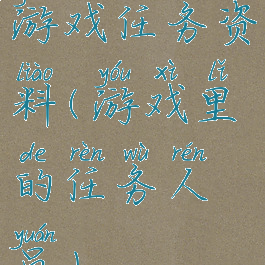 游戏任务资
liào yóu xì lǐ
料(游戏里
de rèn wù rén
的任务人
yuán
员)